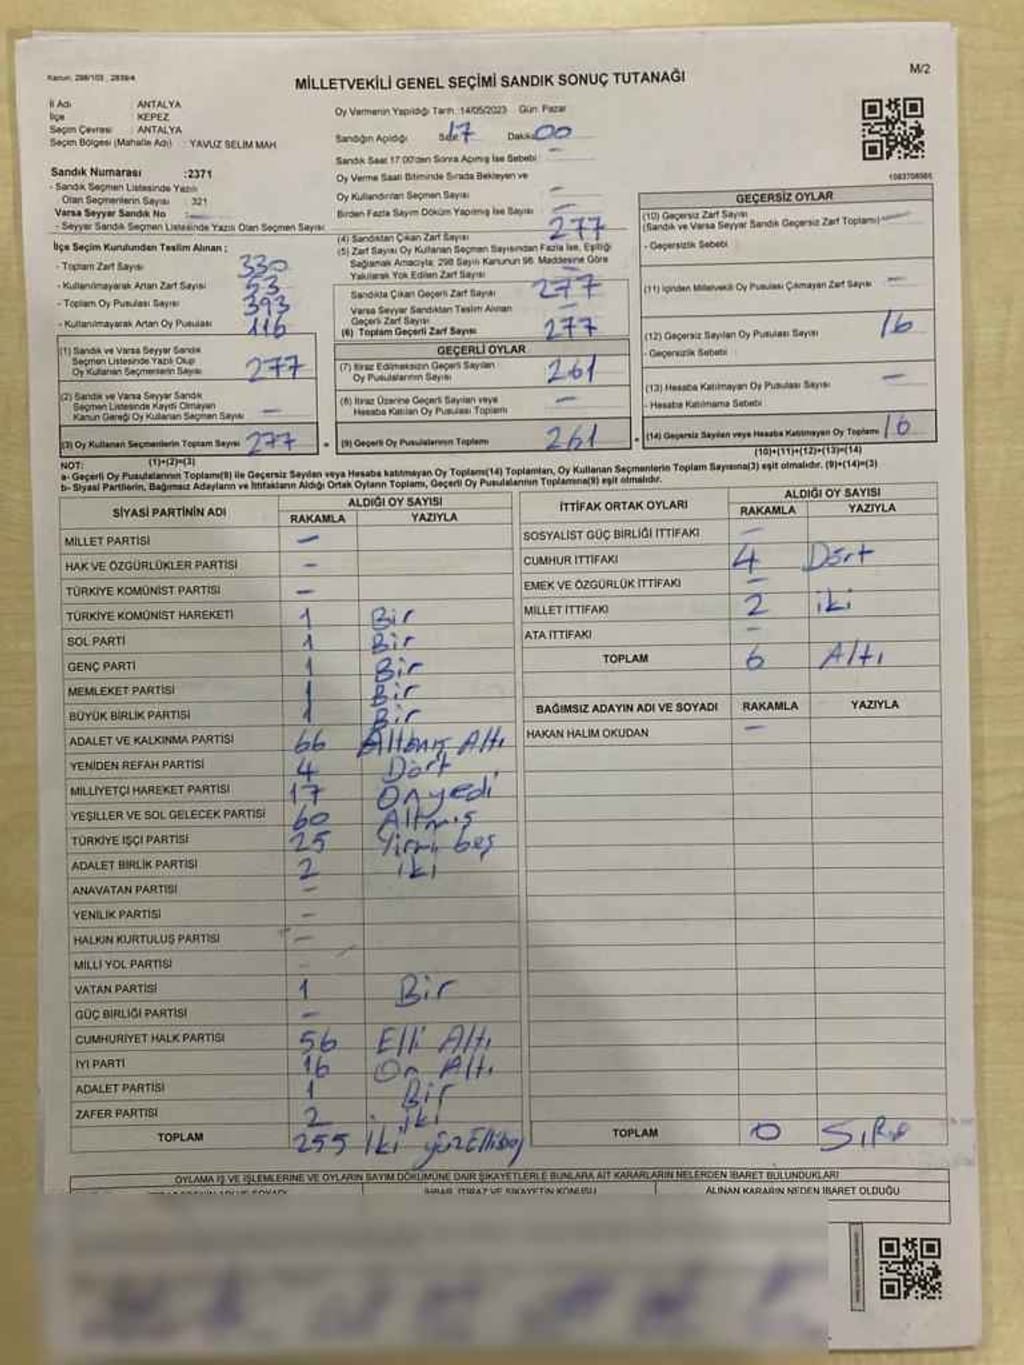 Kanun: 298/103 , 2839/4
MİLLETVEKİLİ GENEL SEÇİMİ SANDIK SONUÇ TUTANAĞI
M/2
İl Adı : ANTALYA
İlçe : KEPEZ
Seçim Çevresi : ANTALYA
Seçim Bölgesi (Mahalle Adı) : YAVUZ SELİM MAH
Sandık Numarası :2371
- Sandık Seçmen Listesinde Yazılı
Olan Seçmenlerin Sayısı : 321
Varsa Seyyar Sandık No :
- Seyyar Sandık Seçmen Listesinde Yazılı Olan Seçmen Sayısı
İlçe Seçim Kurulundan Teslim Alınan :
- Toplam Zarf Sayısı 330
- Kullanılmayarak Artan Zarf Sayısı 53
- Toplam Oy Pusulası Sayısı 393
- Kullanılmayarak Artan Oy Pusulası 116
(1) Sandık ve Varsa Seyyar Sandık
Seçmen Listesinde Yazılı Olup
Oy Kullanan Seçmenlerin Sayısı 277
(2) Sandık ve Varsa Seyyar Sandık
Seçmen Listesinde Kaydı Olmayan
Kanun Gereği Oy Kullanan Seçmen Sayısı —
(3) Oy Kullanan Seçmenlerin Toplam Sayısı 277
(1)+(2)=(3)
Oy Vermenin Yapıldığı Tarih :14/05/2023 Gün: Pazar
Sandığın Açıldığı Saat 17 Dakika 00
Sandık Saat 17:00'den Sonra Açılmış İse Sebebi —
Oy Verme Saati Bitiminde Sırada Bekleyen ve
Oy Kullandırılan Seçmen Sayısı —
Birden Fazla Sayım Döküm Yapılmış İse Sayısı —
(4) Sandıktan Çıkan Zarf Sayısı 277
(5) Zarf Sayısı Oy Kullanan Seçmen Sayısından Fazla İse, Eşitliği
Sağlamak Amacıyla; 298 Sayılı Kanunun 98. Maddesine Göre
Yakılarak Yok Edilen Zarf Sayısı —
Sandıkta Çıkan Geçerli Zarf Sayısı 277
Varsa Seyyar Sandıktan Teslim Alınan
Geçerli Zarf Sayısı —
(6) Toplam Geçerli Zarf Sayısı 277
GEÇERLİ OYLAR
(7) İtiraz Edilmeksizin Geçerli Sayılan
Oy Pusulalarının Sayısı 261
(8) İtiraz Üzerine Geçerli Sayılan veya
Hesaba Katılan Oy Pusulası Toplamı —
(9) Geçerli Oy Pusulalarının Toplamı 261
1083708965
GEÇERSİZ OYLAR
(10) Geçersiz Zarf Sayısı
(Sandık ve Varsa Seyyar Sandık Geçersiz Zarf Toplamı)
- Geçersizlik Sebebi :
(11) İçinden Milletvekili Oy Pusulası Çıkmayan Zarf Sayısı —
(12) Geçersiz Sayılan Oy Pusulası Sayısı 16
- Geçersizlik Sebebi :
(13) Hesaba Katılmayan Oy Pusulası Sayısı —
- Hesaba Katılmama Sebebi :
(14) Geçersiz Sayılan veya Hesaba Katılmayan Oy Toplamı 16
(10)+(11)+(12)+(13)=(14)
NOT:
a- Geçerli Oy Pusulalarının Toplamı(9) ile Geçersiz Sayılan veya Hesaba katılmayan Oy Toplamı(14) Toplamları, Oy Kullanan Seçmenlerin Toplam Sayısına(3) eşit olmalıdır. (9)+(14)=(3)
b- Siyasi Partilerin, Bağımsız Adayların ve İttifakların Aldığı Ortak Oyların Toplamı, Geçerli Oy Pusulalarının Toplamına(9) eşit olmalıdır.
SİYASİ PARTİNİN ADI ALDIĞI OY SAYISI
RAKAMLA YAZIYLA
MİLLET PARTİSİ —
HAK VE ÖZGÜRLÜKLER PARTİSİ —
TÜRKİYE KOMÜNİST PARTİSİ —
TÜRKİYE KOMÜNİST HAREKETİ 1 Bir
SOL PARTİ 1 Bir
GENÇ PARTİ 1 Bir
MEMLEKET PARTİSİ 1 Bir
BÜYÜK BİRLİK PARTİSİ 1 Bir
ADALET VE KALKINMA PARTİSİ 66 Altmış Altı
YENİDEN REFAH PARTİSİ 4 Dört
MİLLİYETÇİ HAREKET PARTİSİ 17 Onyedi
YEŞİLLER VE SOL GELECEK PARTİSİ 60 Altmış
TÜRKİYE İŞÇİ PARTİSİ 25 Yirmi beş
ADALET BİRLİK PARTİSİ 2 iki
ANAVATAN PARTİSİ —
YENİLİK PARTİSİ —
HALKIN KURTULUŞ PARTİSİ —
MİLLİ YOL PARTİSİ —
VATAN PARTİSİ 1 Bir
GÜÇ BİRLİĞİ PARTİSİ —
CUMHURİYET HALK PARTİSİ 56 Elli Altı
İYİ PARTİ 16 On Altı
ADALET PARTİSİ 1 Bir
ZAFER PARTİSİ 2 iki
TOPLAM 255 İki yüzEllibeş
İTTİFAK ORTAK OYLARI ALDIĞI OY SAYISI
RAKAMLA YAZIYLA
SOSYALİST GÜÇ BİRLİĞİ İTTİFAKI —
CUMHUR İTTİFAKI 4 Dört
EMEK VE ÖZGÜRLÜK İTTİFAKI —
MİLLET İTTİFAKI 2 iki
ATA İTTİFAKI —
TOPLAM 6 Altı
BAĞIMSIZ ADAYIN ADI VE SOYADI RAKAMLA YAZIYLA
HAKAN HALİM OKUDAN —
TOPLAM 0 Sıfır
OYLAMA İŞ VE İŞLEMLERİNE VE OYLARIN SAYIM DÖKÜMÜNE DAİR ŞİKAYETLERLE BUNLARA AİT KARARLARIN NELERDEN İBARET BULUNDUKLARI
İHBAR, İTİRAZ VE ŞİKAYETİN KONUSU ALINAN KARARIN NEDEN İBARET OLDUĞU